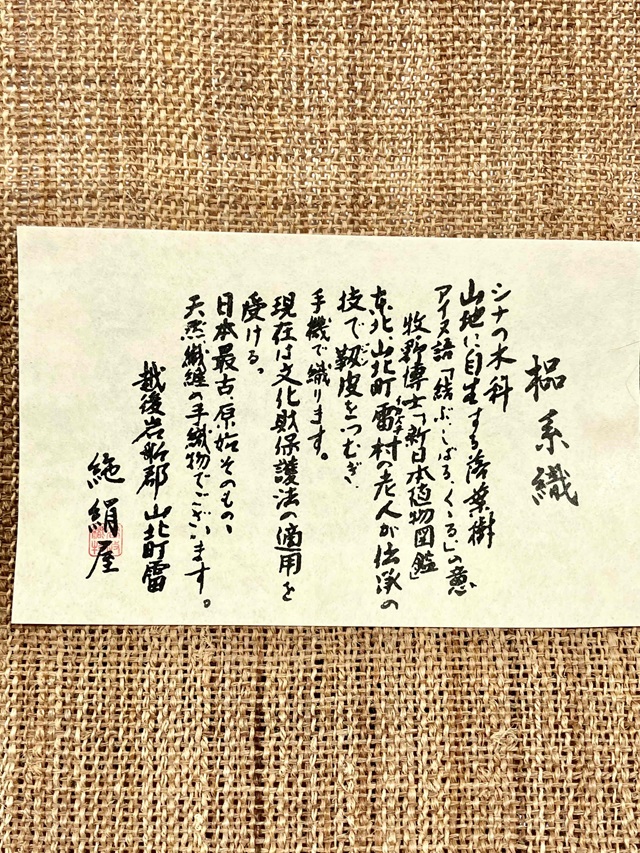 榀糸織
シナの木科
山地に自生する落葉樹
アイヌ語「結ぶ、しばる、くゝる」の意
牧野博士「新日本植物図鑑」
東北 山北町 雷村の老人が伝承の
いかづち
技で靱皮をつむぎ、
じんぴ
手機で織ります。
現在は文化財保護法の適用を
受ける。
日本最古、原始そのもの、
天然繊維の手織物でございます。
越後岩船郡 山北町雷
絁絹屋